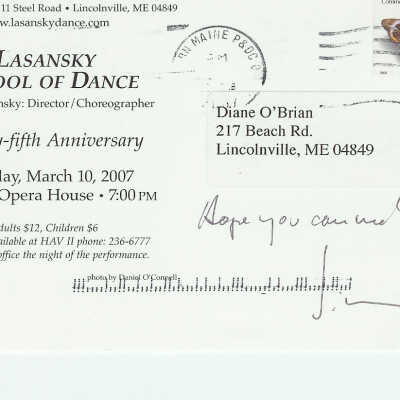 11 Steel Road • Lincolnville, ME 04849
w.lasanskydance.com
LASANSKY
OOL OF DANCE
nsky: Director/Choreographer
y-fifth Anniversary
lay, March 10, 2007
Opera House • 7:00 PM
dults $12, Children $6
ailable at HAV II phone: 236-6777
office the night of the performance.
photo by Daniel O'Connell
RN MAINE P&DC
PM
Diane O'Brian
217 Beach Rd.
Lincolnville, ME 04849
Hope you can